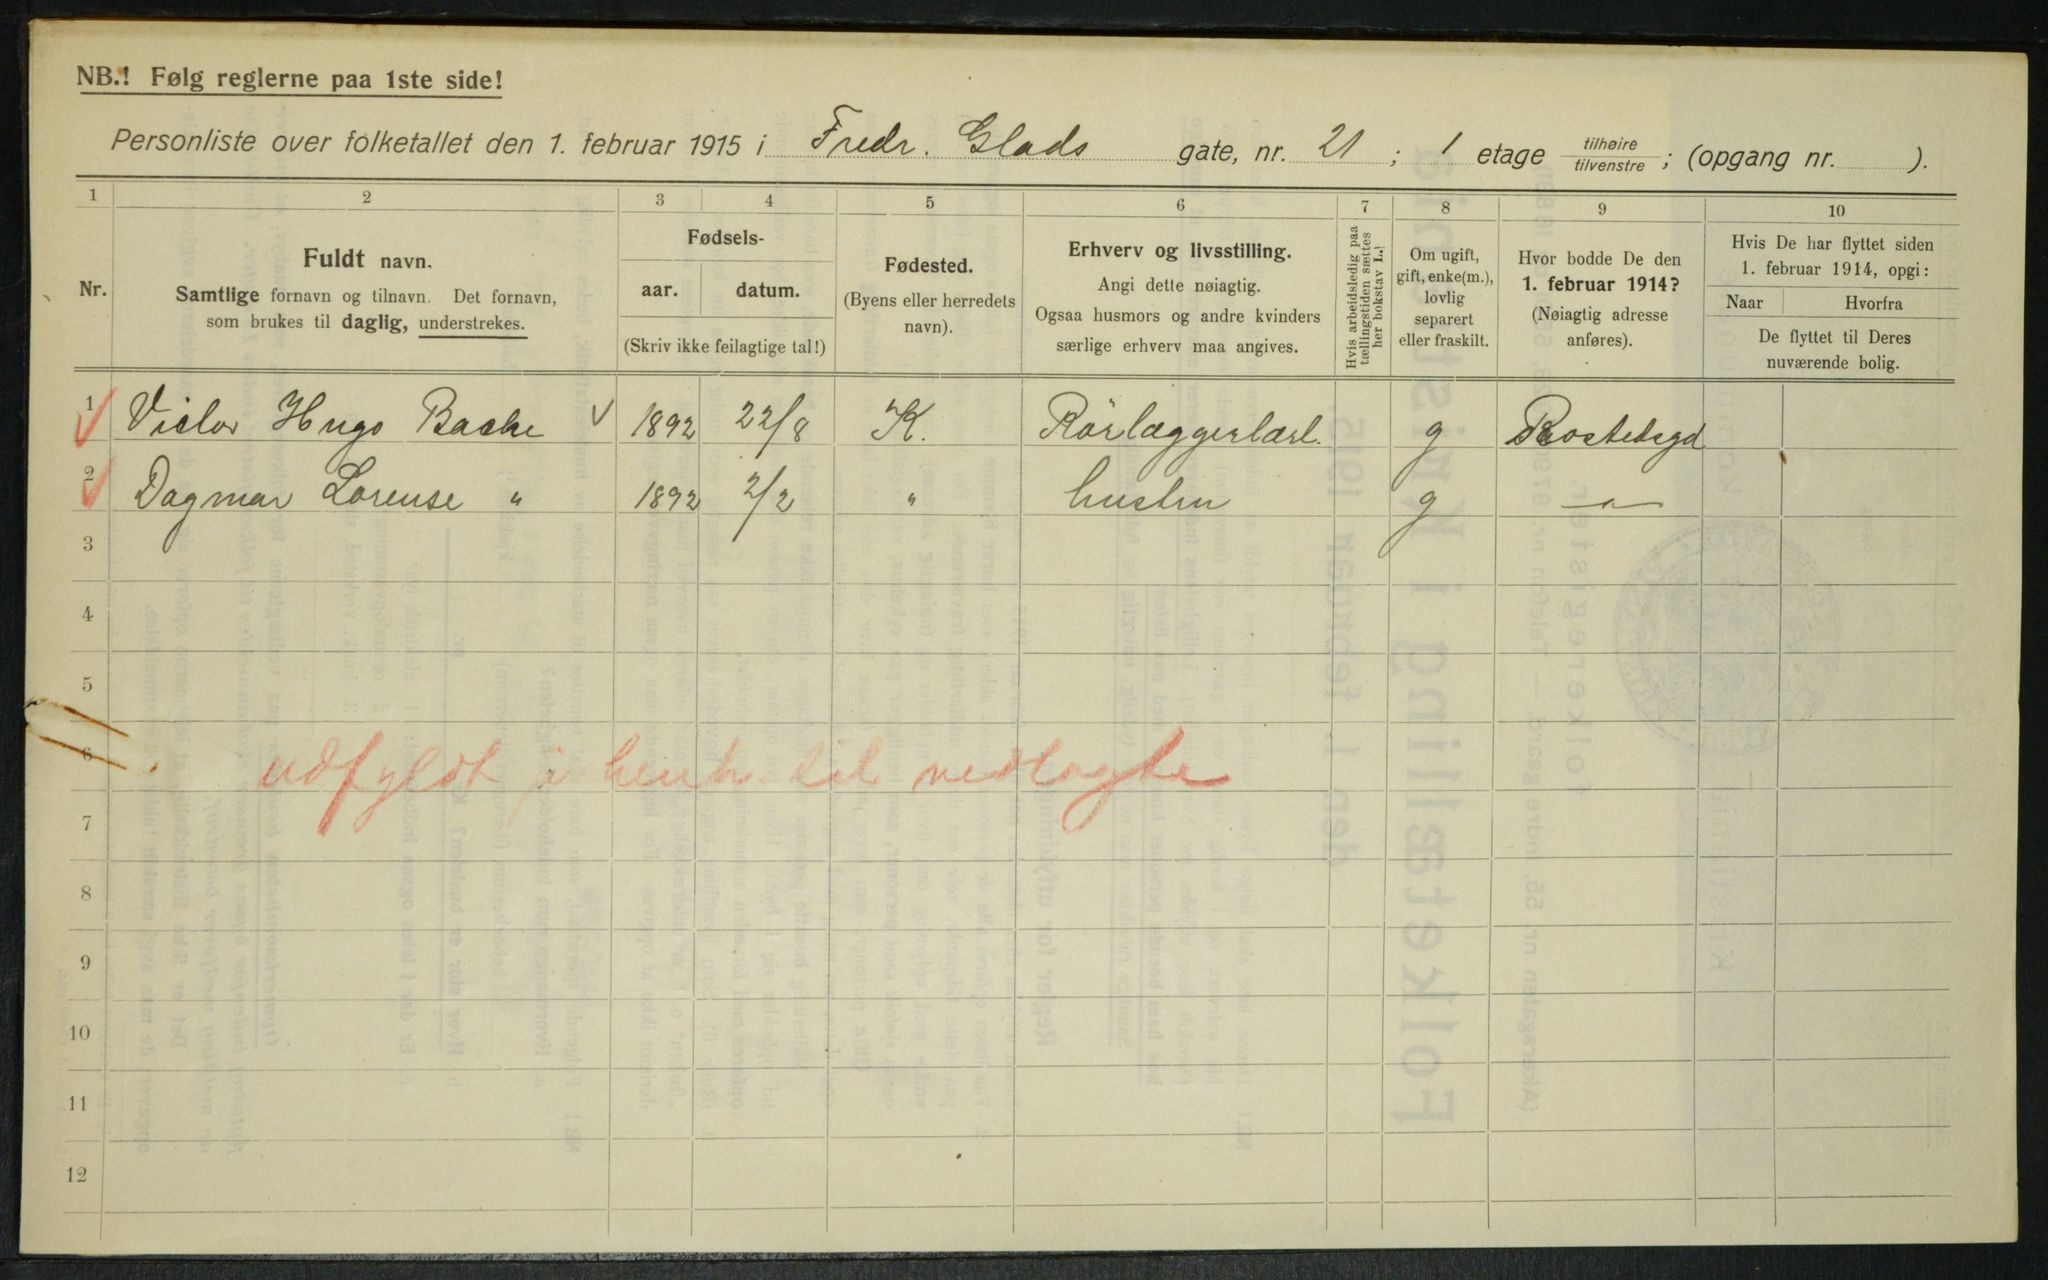 NB.! Følg reglerne paa 1ste side!
Personliste over folketallet den 1. februar 1915 i Fredr. Glads gate, nr. 21 ; 1 etage tilhøire/tilvenstre ; (opgang nr. ).
1 2 3 4 5 6 7 8 9 10
Nr.
Fuldt navn.
Samtlige fornavn og tilnavn. Det fornavn,
som brukes til daglig, understrekes.
Fødsels-
aar. datum.
(Skriv ikke feilagtige tal!)
Fødested.
(Byens eller herredets
navn).
Erhverv og livsstilling.
Angi dette nøiagtig.
Ogsaa husmors og andre kvinders
særlige erhverv maa angives.
Hvis arbeidsledig paa
tællingstiden sættes
her bokstav L.!
Om ugift,
gift, enke(m.),
lovlig
separert
eller fraskilt.
Hvor bodde De den
1. februar 1914?
(Nøiagtig adresse
anføres).
Hvis De har flyttet siden
1. februar 1914, opgi:
Naar Hvorfra
De flyttet til Deres
nuværende bolig.
1 Victor Hugo Backe 1892 22/8 K. Rörlæggerlærl. g Rostedsgd
2 Dagmar Lorense " 1892 2/2 " hustru g —"—
3
4
5
6
udfyldt i henh. til vedlagte
7
8
9
10
11
12